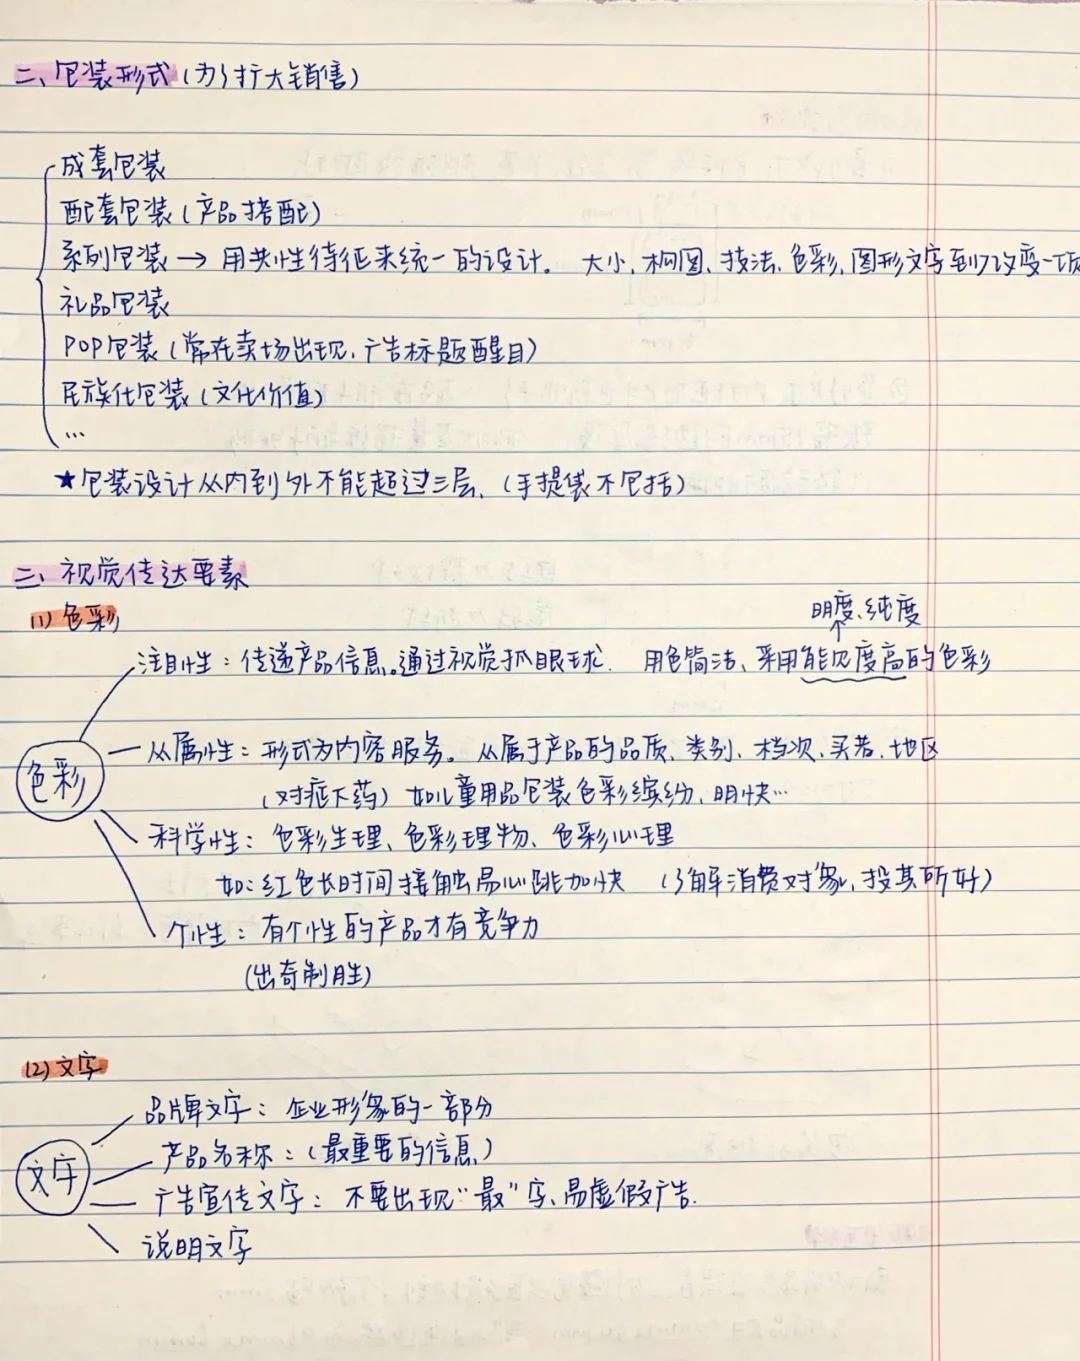 二、包装形式(为了扩大销售)
成套包装
配套包装(产品搭配)
系列包装→用共性特征来统一的设计。 大小、构图、技法、色彩、图形文字到以改变一项
礼品包装
POP包装(常在卖场出现、广告标题醒目)
民族化包装(文化价值)
...
★包装设计从内到外不能超过三层、(手提袋不包括)
三、视觉传达要素
(1)色彩
明度、纯度
注目性:传递产品信息。通过视觉抓眼球. 用色简洁、采用能见度高的色彩
色彩
从属性:形式为内容服务。从属于产品的品质、类别、档次、买者、地区
(对症下药)如儿童用品包装色彩缤纷、明快...
科学性:色彩生理、色彩理物、色彩心理
如:红色长时间接触易心跳加快 (了解消费对象、投其所好)
个性:有个性的产品才有竞争力
(出奇制胜)
(2)文字
品牌文字:企业形象的一部分
产品名称:(最重要的信息)
文字
广告宣传文字:不要出现“最”字、易虚假广告.
说明文字